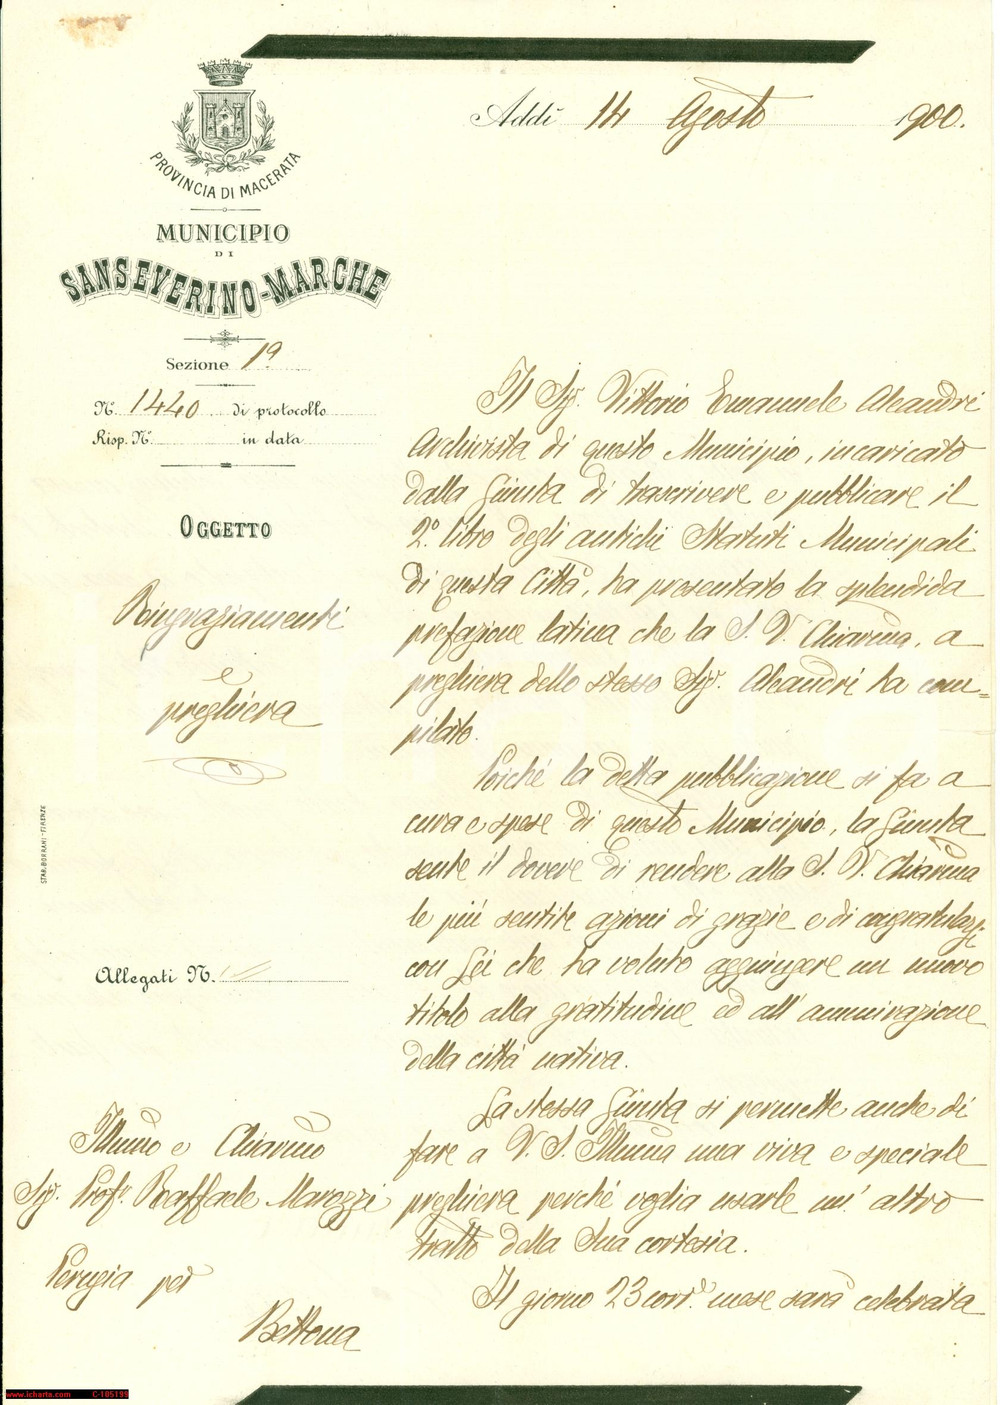 PROVINCIA DI MACERATA
MUNICIPIO
DI
SANSEVERINO-MARCHE
Sezione 1ª
N.º 1440 di protocollo
Risp. N.º in data
OGGETTO
Ringraziamenti
e
preghiera
STAB. BORRANI - FIRENZE
Allegati N.
Illmo e Chiarmo
Sigr. Profr. Raffaele Marozzi
Perugia per
Bettona
Addì 14 Agosto 1900.
Il Sigr. Vittorio Emanuele Aleandri
Archivista di questo Municipio, incaricato
dalla Giunta di trascrivere e pubblicare il
2º libro degli antichi Statuti Municipali
di questa Città, ha presentato la splendida
prefazione latina che la S. V. Chiarma, a
preghiera dello stesso Sigr. Aleandri ha com=
pilato.
Poiché la detta pubblicazione si fa a
cura e spese di questo Municipio, la Giunta
sente il dovere di rendere alla S. V. Chiarma
le più sentite azioni di grazie e di congratulazi
con Lei che ha voluto aggiungere un nuovo
titolo alla gratitudine ed all'ammirazione
della città nativa.
La stessa Giunta si permette anche di
fare a V. S. Illma una viva e speciale
preghiera perché voglia usarle un' altro
tratto della Sua cortesia.
Il giorno 23 corr. mese sarà celebrata
www.icharta.com C-105199